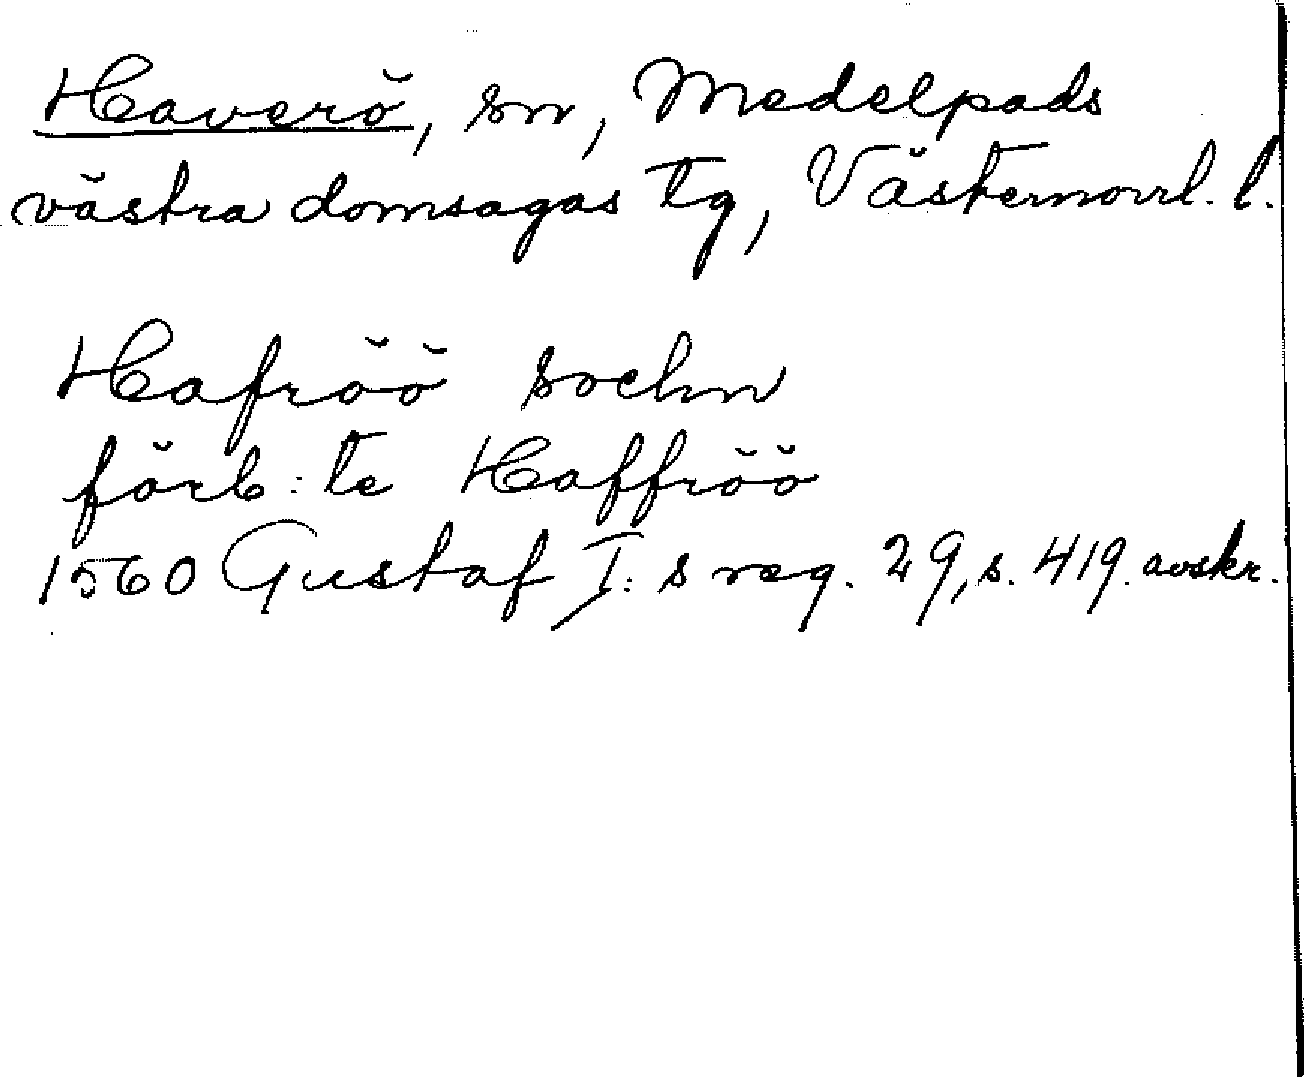 Haverö, sn, Medelpads
västra domsagas tg, Västernorrl. l.
Hafröö sochn
förb: te Haffröö
1560 Gustaf I:s reg. 29, s. 419. avskr.